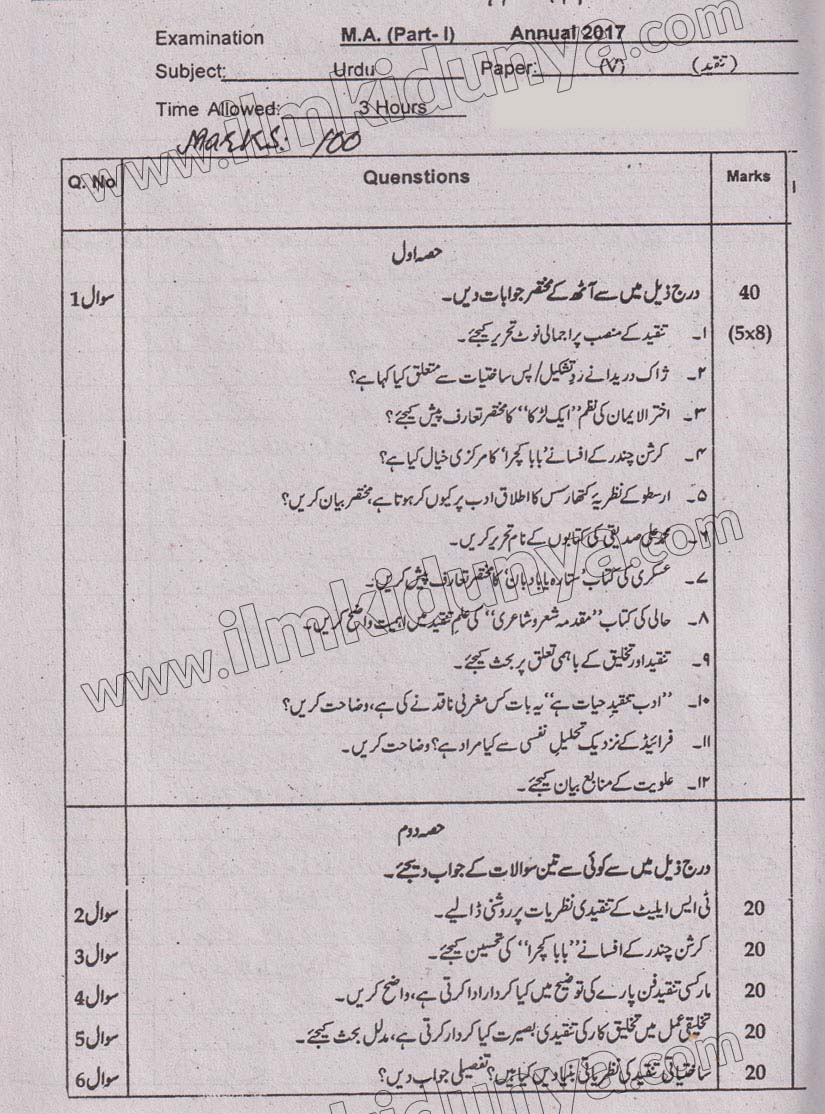 Examination M.A. (Part- I) Annual 2017
Subject: Urdu Paper: (V) (تنقید)
Time Allowed: 3 Hours
Marks: 100
Q. No Quenstions Marks
حصہ اول
سوال 1 درج ذیل میں سے آٹھ کے مختصر جوابات دیں۔ 40
۱۔ تنقید کے منصب پر اجمالی نوٹ تحریر کیجئے۔ (5x8)
۲۔ ژاک دریدا نے ردِ تشکیل/پس ساختیات سے متعلق کیا کہا ہے؟
۳۔ اختر الایمان کی نظم ’’ایک لڑکا‘‘ کا مختصر تعارف پیش کیجئے؟
۴۔ کرشن چندر کے افسانے ’بابا کچرا‘ کا مرکزی خیال کیا ہے؟
۵۔ ارسطو کے نظریۂ کتھارسس کا اطلاق ادب پر کیوں کر ہوتا ہے، مختصر بیان کریں؟
۶۔ محمد علی صدیقی کی کتابوں کے نام تحریر کریں۔
۷۔ عسکری کی کتاب ’ستارہ یا بادبان‘ کا مختصر تعارف پیش کریں۔
۸۔ حالی کی کتاب ’’مقدمہ شعر و شاعری‘‘ کی علمِ تنقید میں اہمیت واضح کریں۔
۹۔ تنقید اور تخلیق کے باہمی تعلق پر بحث کیجئے۔
۱۰۔ ’’ادب تنقیدِ حیات ہے‘‘ یہ بات کس مغربی ناقد نے کی ہے، وضاحت کریں؟
۱۱۔ فرائیڈ کے نزدیک تحلیلِ نفسی سے کیا مراد ہے؟ وضاحت کریں۔
۱۲۔ علویت کے منابع بیان کیجئے۔
حصہ دوم
درج ذیل میں سے کوئی سے تین سوالات کے جواب دیجئے۔
سوال 2 ٹی ایس ایلیٹ کے تنقیدی نظریات پر روشنی ڈالیے۔ 20
سوال 3 کرشن چندر کے افسانے ’’بابا کچرا‘‘ کی تحسین کیجئے۔ 20
سوال 4 مارکسی تنقید فن پارے کی توضیح میں کیا کردار ادا کرتی ہے، واضح کریں۔ 20
سوال 5 تخلیقی عمل میں تخلیق کار کی تنقیدی بصیرت کیا کردار کرتی ہے، مدلل بحث کیجئے۔ 20
سوال 6 ساختیاتی تنقید کی نظریاتی بنیادیں کیا ہیں؟ تفصیلی جواب دیں؟ 20
www.ilmkidunya.com
www.ilmkidunya.com